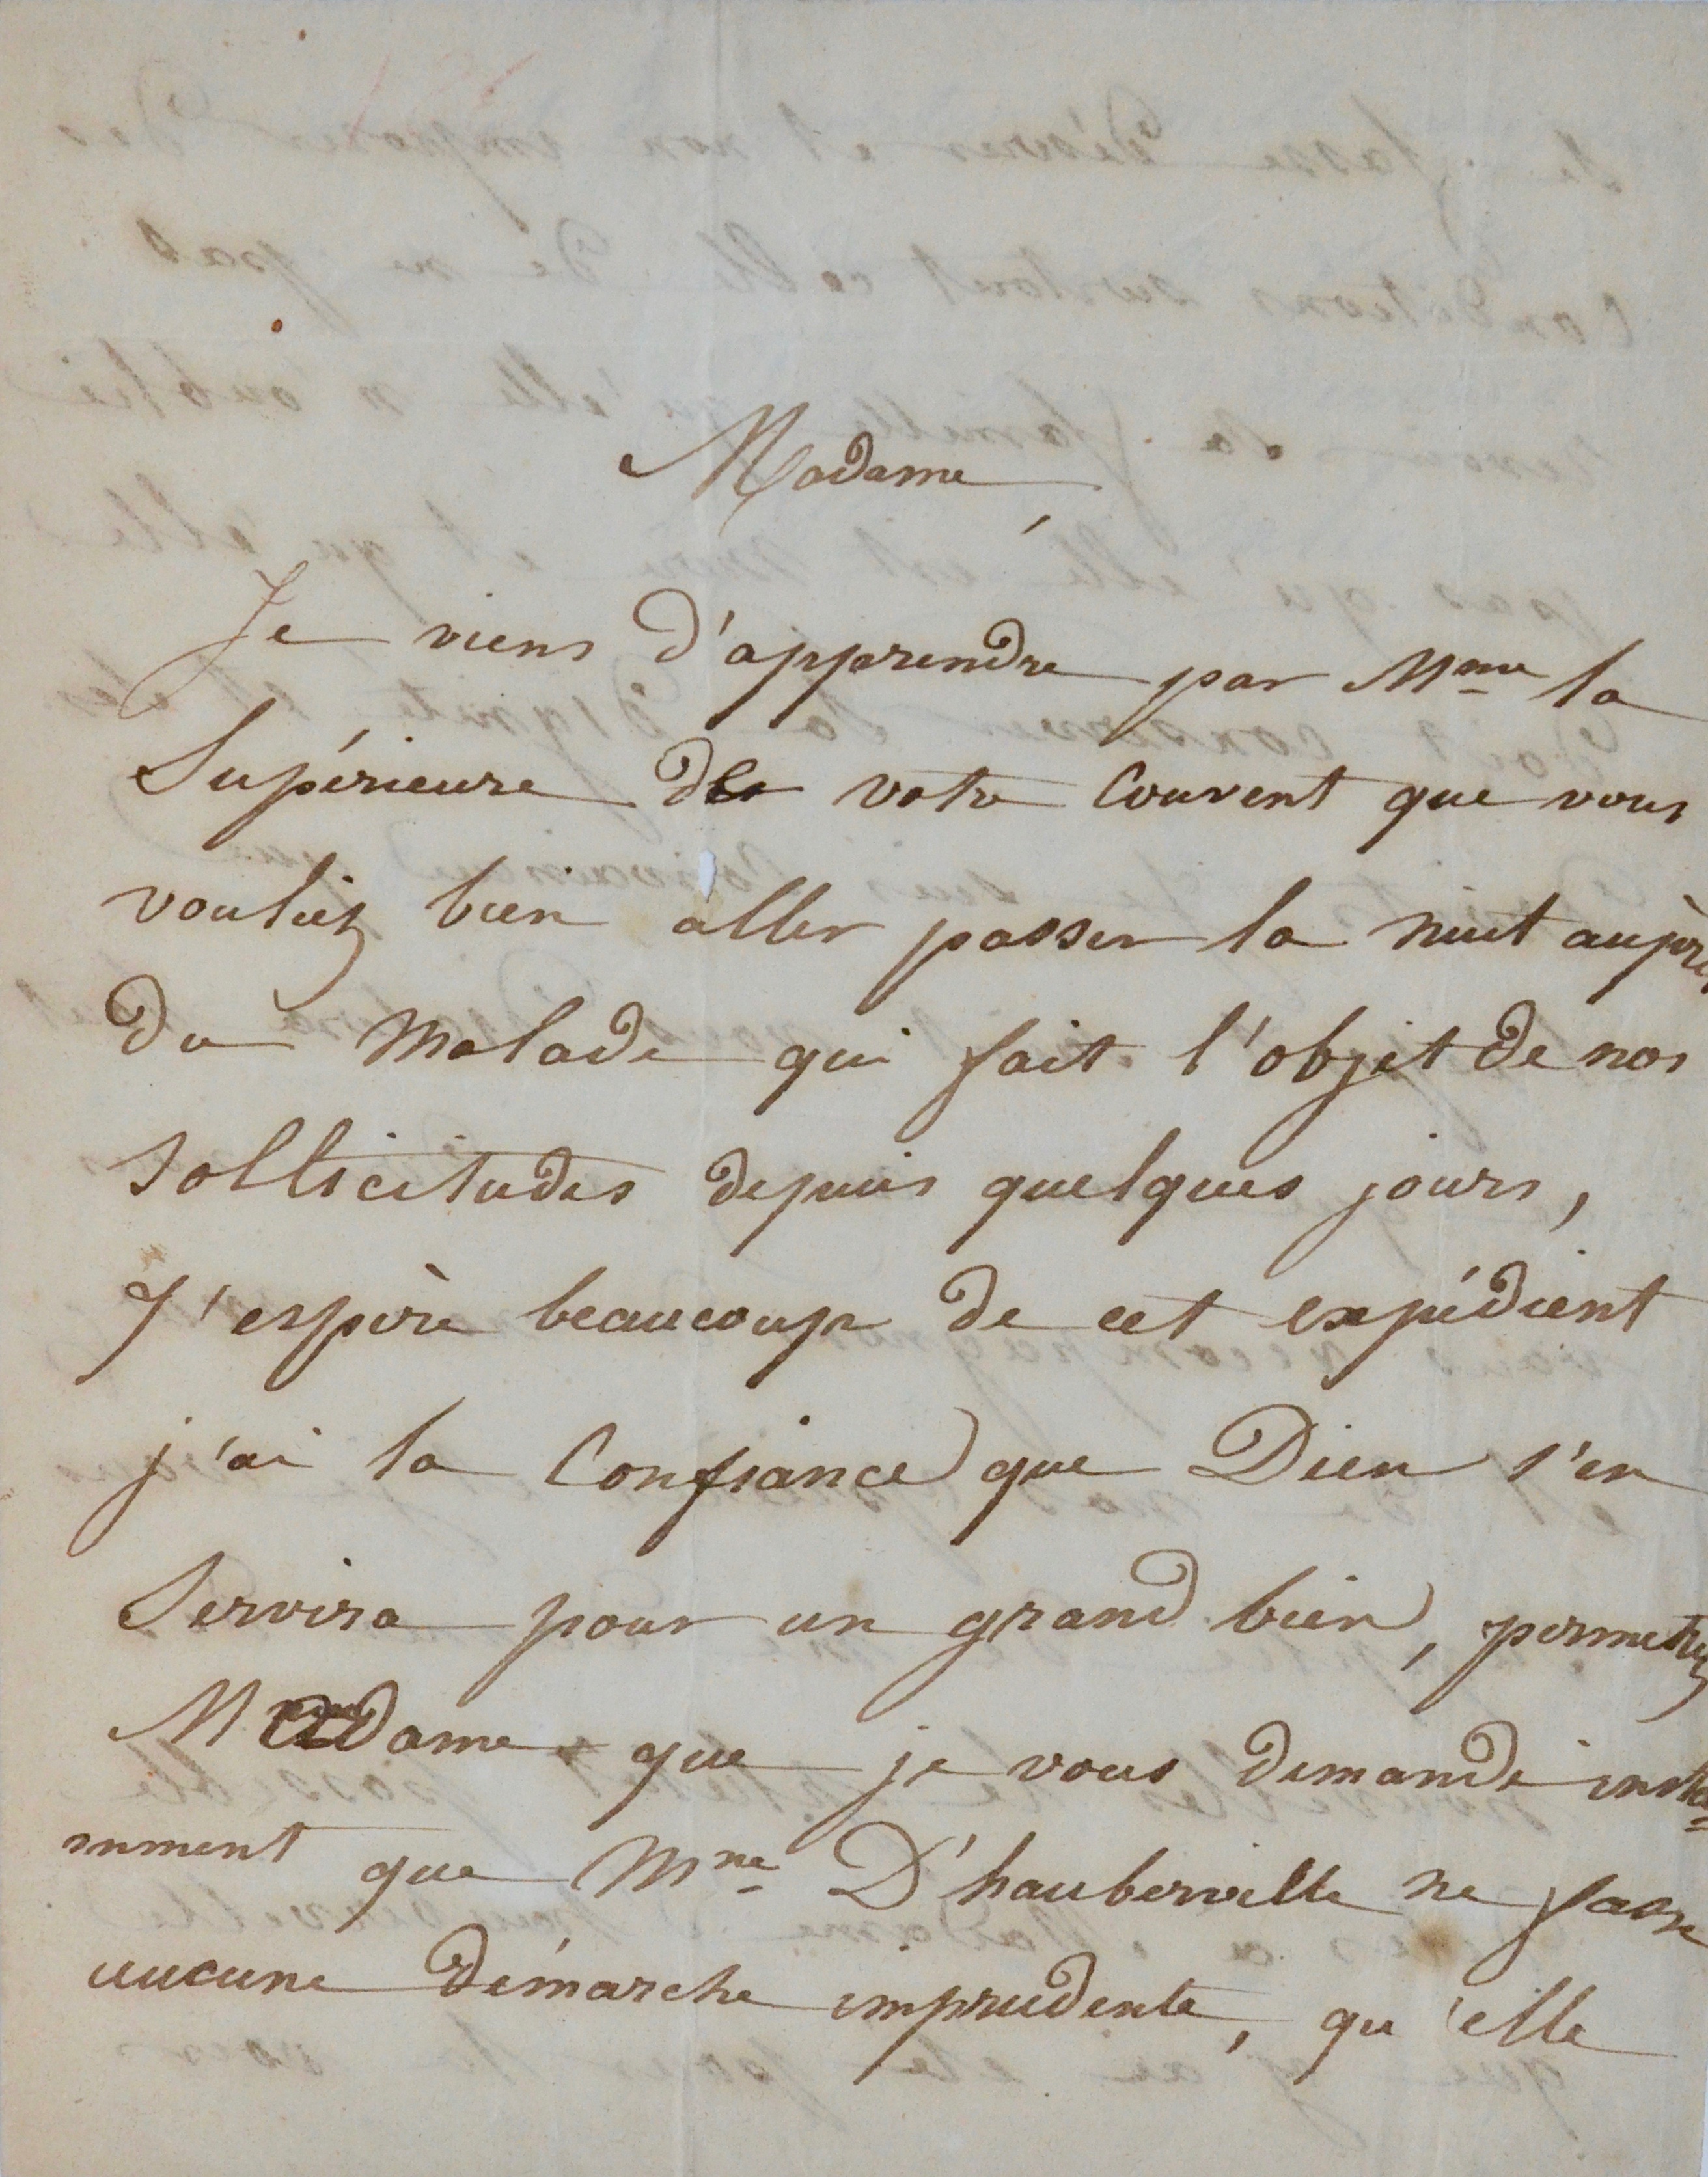 Madame,
Je viens d'apprendre par Mme la
Supérieure de votre Couvent que vous
vouliez bien aller passer la nuit auprès
du Malade qui fait l'objet de nos
sollicitudes depuis quelques jours,
J'espère beaucoup de cet expédient
j'ai la Confiance que Dieu s'en
Servira pour un grand bien, permettez
Madame que je vous demande insta=
mment que Mme D'hauberville ne fasse
aucune démarche imprudente, qu'elle